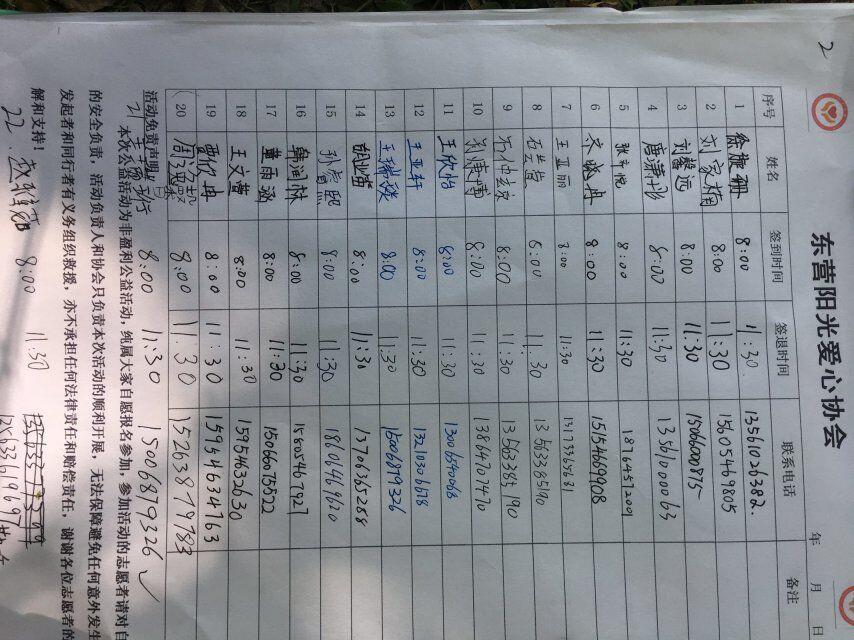 2
东营阳光爱心协会
年 月 日
序号 姓名 签到时间 签退时间 联系电话 备注
1 徐旋珊 8:00 11:30 13561026382.
2 刘家楠 8:00 11:30 15605469805
3 刘馨远 8:00 11:30 15066000875
4 唐潇彤 8:00 11:30
5 8:00 11:30 18764572001
6 齐晓冉 8:00 11:30 15154669908
7 王亚丽 8:00 11:30
8 石兰莹 8:00 11:30 13563385190
9 石仲玄 8:00 11:30 13563385190
10 8:00 11:30 13864707470
11 王欣怡 8:00 11:30
12 王亚轩 8:00 11:30 13210306618
13 王瑞琰 8:00 11:30 15006879326
14 8:00 11:30 13706365288
15 8:00 11:30 18606469620
16 韩润林 8:00 11:30 15805467927
17 董雨涵 8:00 11:30 15066075522
18 王文萱 8:00 11:30 15954632630
19 贾欣冉 8:00 11:30 15954634763
20 8:00 11:30 15263879783
活动免责声明
21 8:00 11:30 15006879326 ✓
本次公益活动为非盈利公益活动，纯属大家自愿报名参加，参加活动的志愿者请对自
的安全负责，活动负责人和协会只负责本次活动的顺利开展，无法保障避免任何意外发生
发起者和同行者有义务组织救援，亦不承担任何法律责任和赔偿责任，谢谢各位志愿者的
解和支持！
22 8:00 11:30